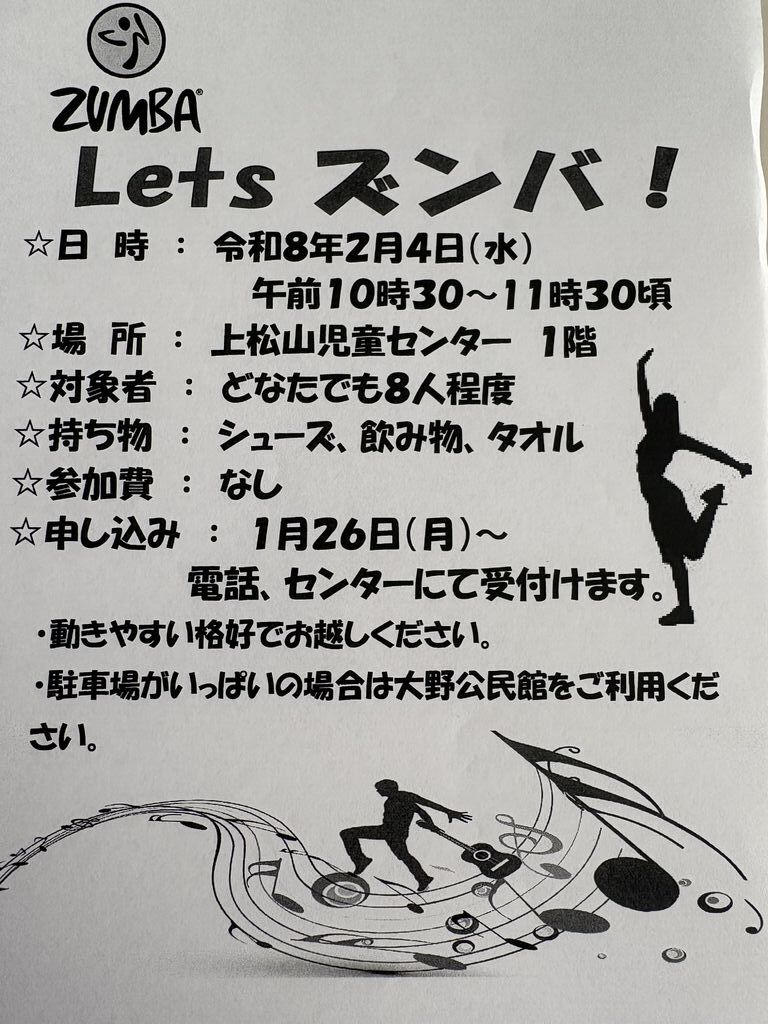 ZUMBA®
Lets ズンバ！
☆日 時 ： 令和8年2月4日(水)
午前10時30～11時30頃
☆場 所 ： 上松山児童センター 1階
☆対象者 ： どなたでも8人程度
☆持ち物 ： シューズ、飲み物、タオル
☆参加費 ： なし
☆申し込み ： 1月26日(月)～
電話、センターにて受付けます。
・動きやすい格好でお越しください。
・駐車場がいっぱいの場合は大野公民館をご利用くだ
さい。